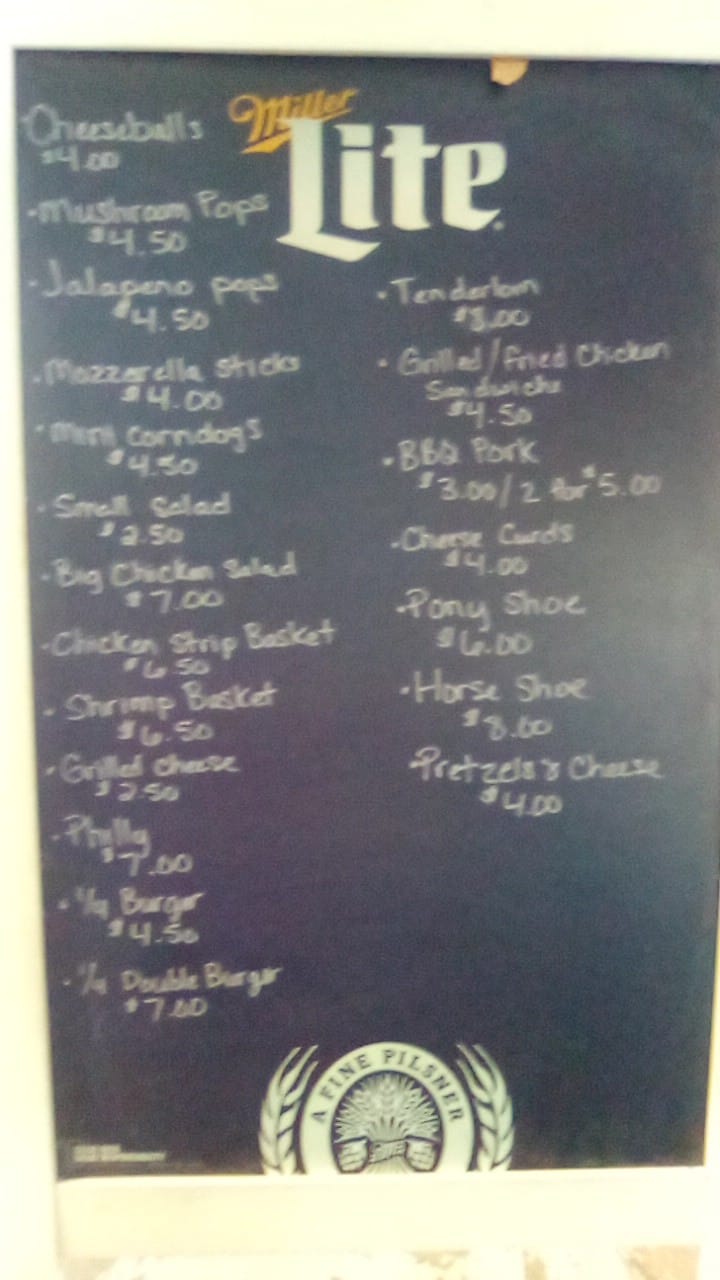 Miller
Lite
·Cheeseballs
$4.00
·Mushroom Pops
$4.50
·Jalapeno pops
$4.50
·Mozzarella Sticks
$4.00
·Mini Corndogs
$4.50
·Small Salad
$2.50
·Big Chicken Salad
$7.00
·Chicken Strip Basket
$6.50
·Shrimp Basket
$6.50
·Grilled cheese
$2.50
·Philly
$7.00
·1/4 Burger
$4.50
·1/4 Double Burger
$7.00
·Tenderloin
$8.00
·Grilled/Fried Chicken
Sandwich
$4.50
·BBQ Pork
$3.00/2 for $5.00
·Cheese Curds
$4.00
·Pony Shoe
$6.00
·Horse Shoe
$8.00
·Pretzels & Cheese
$4.00
A FINE PILSNER